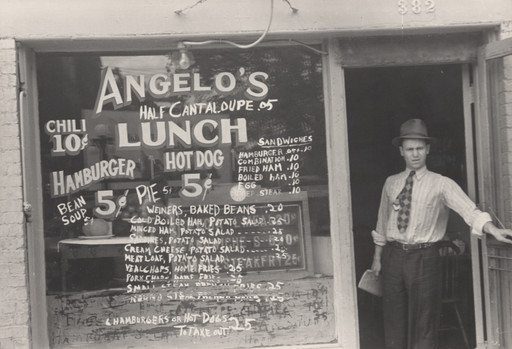 382
ANGELO'S
HALF CANTALOUPE .05
CHILI
10¢
LUNCH
HAMBURGER
5¢
HOT DOG
5¢
SANDWICHES
HAMBURGER .10
COMBINATION .10
FRIED HAM .10
BOILED HAM .10
EGG .10
STEAK .10
BEAN
SOUP 5¢
PIE 5¢
WEINERS, BAKED BEANS .20
COLD BOILED HAM, POTATO SALAD
MINCED HAM, POTATO SALAD
SARDINES, POTATO SALAD
CREAM CHEESE, POTATO SALAD
MEAT LOAF, POTATO SALAD
VEAL CHOPS, HOME FRIES .25
PORK CHOPS HOME FRIES .25
SMALL STEAK 25
ROUND STEAK 25
6 HAMBURGERS OR HOT DOGS 25
TO TAKE OUT